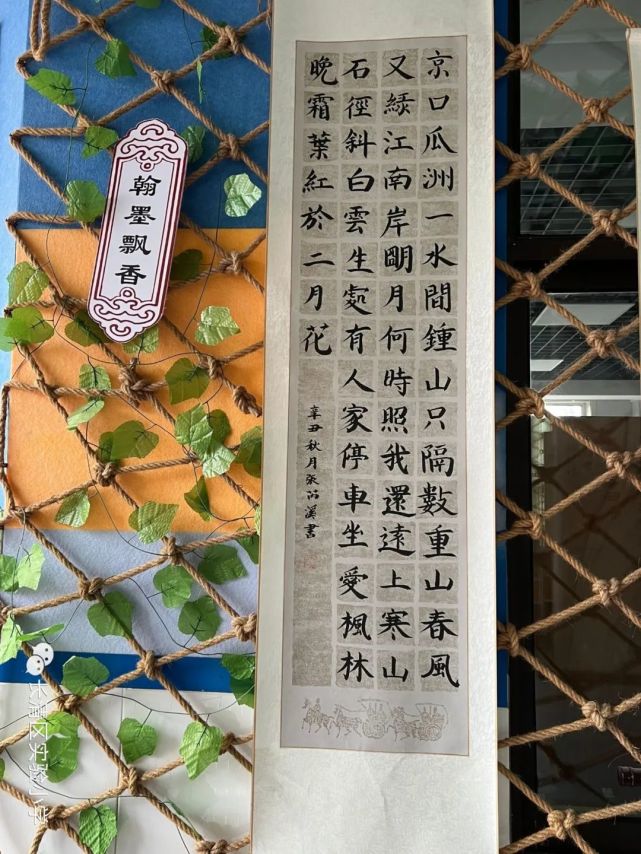 翰墨飘香
京口瓜洲一水間鍾山只隔數重山春風
又綠江南岸朙月何時照我還遠上寒山
石徑斜白雲生處有人家停車坐愛楓林
晚霜葉紅於二月花
辛丑秋月张溪書
长清区实验小学